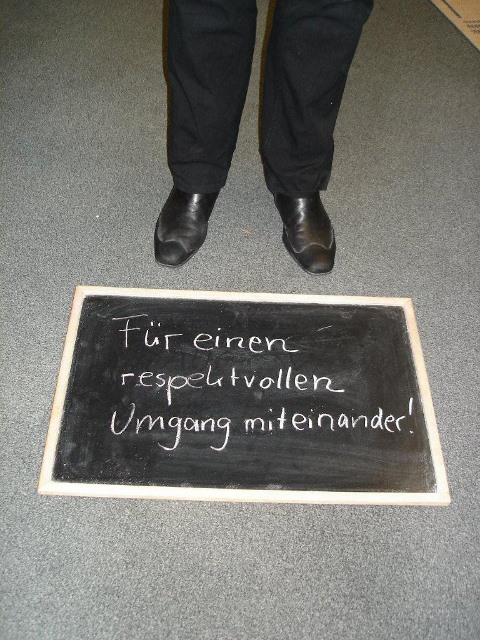 Für einen
respektvollen
Umgang miteinander!